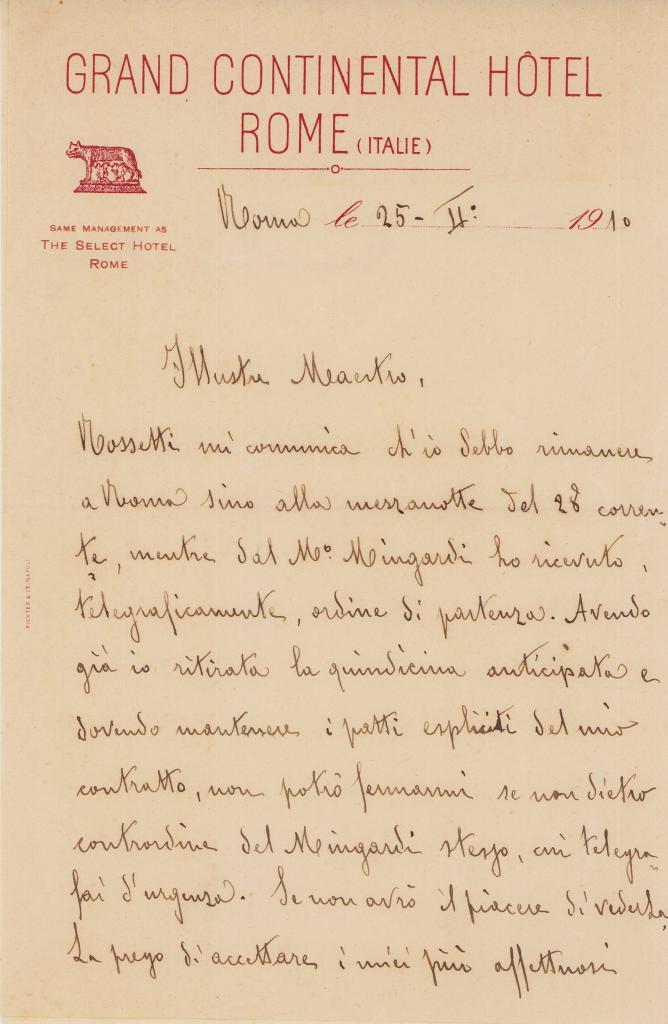 GRAND CONTINENTAL HÔTEL
ROME (ITALIE)
SAME MANAGEMENT AS
THE SELECT HOTEL
ROME
Roma le 25 - II° 1910
Illustre Maestro,
Rossetti mi comunica ch'io debbo rimanere
a Roma sino alla mezzanotte del 28 corren-
te, mentre dal M° Mingardi ho ricevuto,
telegraficamente, ordine di partenza. Avendo
già io ritirata la quindicina anticipata e
dovendo mantenere i patti espliciti del mio
contratto, non potrò fermarmi se non dietro
contrordine del Mingardi stesso, cui telegra-
fai d'urgenza. Se non avrò il piacere di vederLa,
La prego di accettare i miei più affettuosi
RICHTER & C° NAPOLI